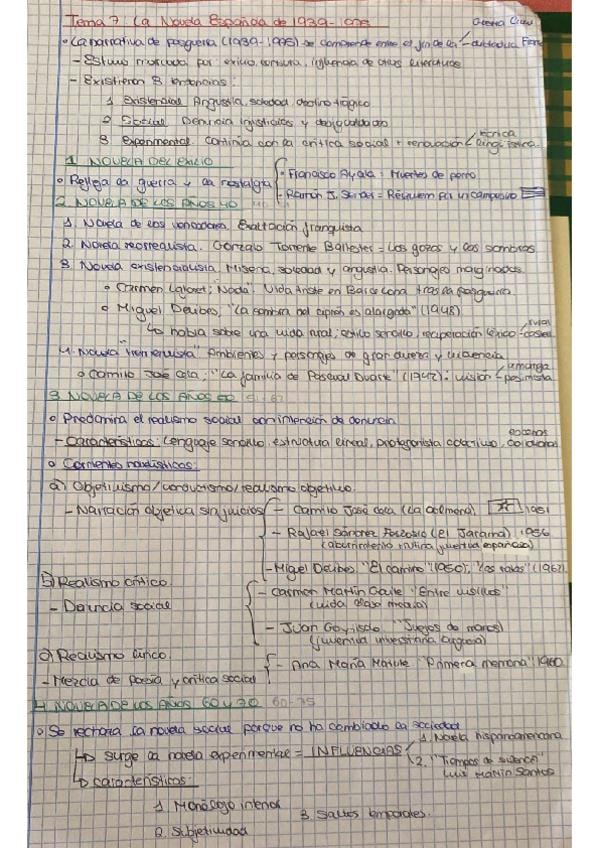 Tema 7. La Novela Española de 1939-1975
Guerra Civil
• La narrativa de posguerra (1939-1975) se comprende entre el fin de la dictadura Fran
- Estuvo marcada por: exilio, censura, influencia de otras literaturas
- Existieron 3 tendencias:
1. Existencial Angustia, soledad, destino trágico
2. Social Denuncia injusticias y desigualdades
3. Experimental Continúa con la crítica social + renovación técnica lingüística
1. NOVELA DEL EXILIO
• Refleja la guerra y la nostalgia
- Francisco Ayala: Muertes de perro
- Ramón J. Sender = Réquiem por un campesino
2. NOVELA DE LOS AÑOS 40
1. Novela de los vencedores. Exaltación franquista
2. Novela neorrealista. Gonzalo Torrente Ballester = Los gozos y las sombras
3. Novela existencialista. Miseria, soledad y angustia. Personajes marginados
• Carmen Laforet; "Nada". Vida triste en Barcelona tras la posguerra
• Miguel Delibes, "La sombra del ciprés es alargada" (1948)
↳ habla sobre una vida rural, estilo sencillo, recuperación léxico rural
4. Novela "tremendista" Ambientes y personajes de gran dureza y violencia
• Camilo José Cela; "La familia de Pascual Duarte" (1942): visión amarga pesimista
3. NOVELA DE LOS AÑOS 50 51-62
• Predomina el realismo social con intención de denuncia
- Características: Lenguaje sencillo, estructura lineal, protagonista colectivo,
• Corrientes novelísticas:
a) Objetivismo/conductismo/realismo objetivo.
- Narración objetiva sin juicios
- Camilo José Cela (La colmena) 1951
- Rafael Sánchez Ferlosio (El Jarama) 1956
(aburrimiento rutina juventud española)
- Migel Delibes "El camino" (1950); "Las ratas" (1962)
b) Realismo crítico.
- Denuncia social
- Carmen Martín Gaite "Entre visillos"
(vida clase media)
- Juan Goytisolo "Juegos de manos)
(juventud universitaria burguesa)
c) Realismo lírico.
- Mezcla de poesía y crítica social
- Ana María Matute "Primera memoria" 1960
4. NOVELA DE LOS AÑOS 60 y 70 60-75
• Se rechaza la novela social porque no ha cambiado la sociedad
↳ Surge la novela experimental = INFLUENCIAS
1. Novela hispanoamericana
2. "Tiempos de silencio" Luis Martín Santos
↳ Características:
1. Monólogo interior
2. Subjetividad
3. Saltos temporales.